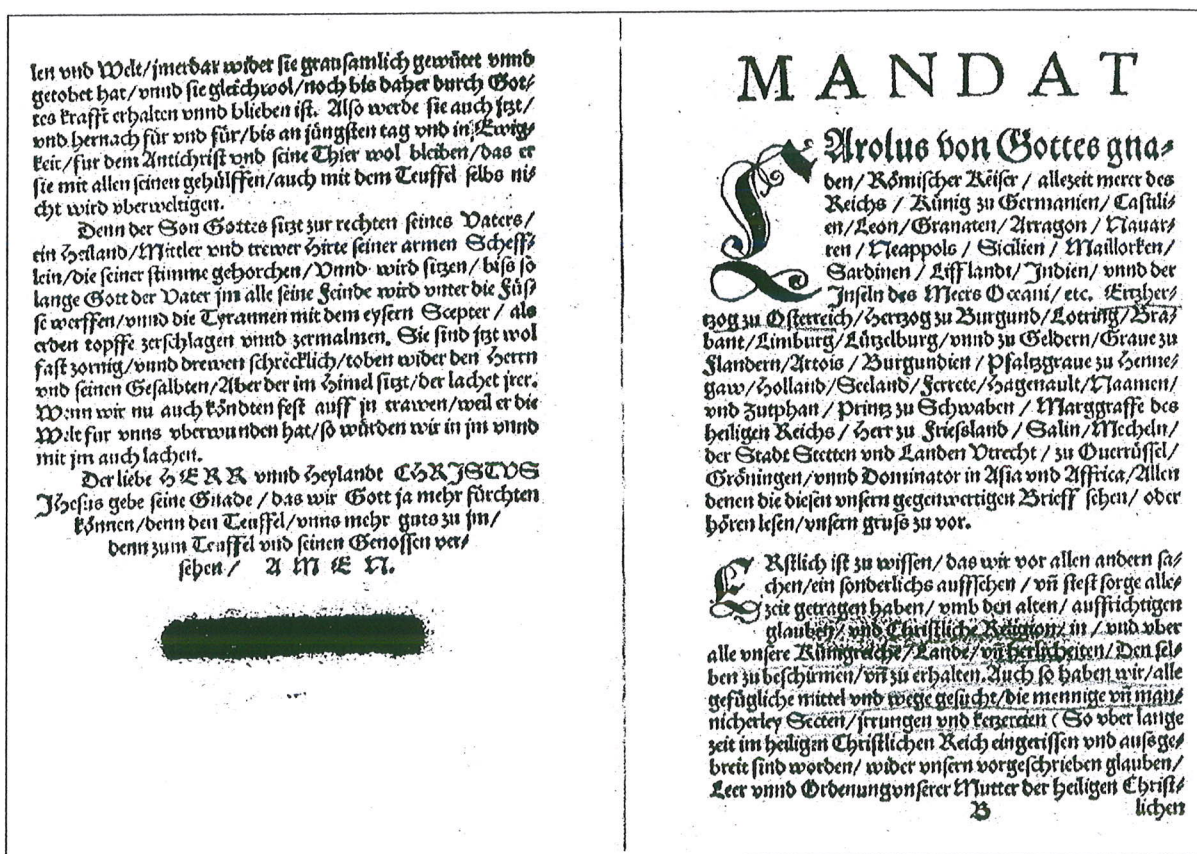 len vnd Welt/jmerdar wider sie grausamlich gewütet vnnd
getobet hat/vnnd sie gleichwol/noch bis daher durch Got⸗
tes krafft erhalten vnnd blieben ist. Also werde sie auch jtzt/
vnd hernach für vnd für/bis an jüngsten tag vnd in Ewig⸗
keit/für dem Antichrist vnd seine Thier wol bleiben/das er
sie mit allen seinen gehülffen/auch mit dem Teuffel selbs ni⸗
cht wird vberweltigen.
Denn der Son Gottes sitzt zur rechten seines Vaters/
ein Heiland/Mittler vnd trewer Hirte seiner armen Scheff⸗
lein/die seiner stimme gehorchen/Vnnd wird sitzen/biss so
lange Gott der Vater jm alle seine Feinde wird vnter die Füs⸗
se werffen/vnnd die Tyrannen mit dem eysern Scepter/als
erden topffe zerschlagen vnnd zermalmen. Sie sind jtzt wol
fast zornig/vnnd drewen schröcklich/toben wider den Herrn
vnd seinen Gesalbten/Aber der im Himel sitzt/der lachet jrer.
Wenn wir nu auch köndten fest auff jn trawen/weil er die
Welt für vnns vberwunden hat/so würden wir in jm vnnd
mit jm auch lachen.
Der liebe HERR vnnd Heylandt CHRJSTVS
Jhesus gebe seine Gnade/das wir Gott ja mehr fürchten
können/denn den Teuffel/vnns mehr guts zu jm/
denn zum Teuffel vnd seinen Genossen ver⸗
sehen/ AMEN.
MANDAT
CArolus von Gottes gna⸗
den/Römischer Keiser/allezeit merer des
Reichs/Künig zu Germanien/Castili⸗
en/Leon/Granaten/Arragon/Nauar⸗
ren/Neappols/Sicilien/Maillorken/
Sardinen/Lifflandt/Jndien/vnnd der
Jnseln des Meers Occani/etc. Ertzher⸗
tzog zu Osterreich/Hertzog zu Burgund/Lotring/Bra⸗
bant/Limburg/Lützelburg/vnnd zu Geldern/Graue zu
Flandern/Artois/Burgundien/Pfaltzgraue zu Henne⸗
gaw/Holland/Seeland/Ferrete/Hagenault/Naamen/
vnd Zutphan/Printz zu Schwaben/Marggraffe des
heiligen Reichs/Herr zu Friessland/Salin/Mecheln/
der Stadt Stetten vnd Landen Vtrecht/zu Querrüssel/
Gröningen/vnnd Dominator in Asia vnd Affrica/Allen
denen die diesen vnsern gegenwertigen Brieff sehen/oder
hören lesen/vnsern gruss zu vor.
ERstlich ist zu wissen/das wir vor allen andern sa⸗
chen/ein sonderlichs auffsehen/vñ stest sorge alle⸗
zeit getragen haben/vmb den alten/auffrichtigen
glauben/vnd Christliche Religion/in/vnd vber
alle vnsere Künigreiche/Lande/vñ herlicheiten/Den sel⸗
ben zu beschirmen/vñ zu erhalten. Auch so haben wir/alle
gefügliche mittel vnd wege gesucht/die mennige vñ man⸗
nicherley Secten/jrrungen vnd ketzereien (So vber lange
zeit im heiligen Christlichen Reich eingerissen vnd aussge⸗
breit sind worden/wider vnsern vorgeschrieben glauben/
Leer vnnd Ordenung vnserer Mutter der heiligen Christ⸗
B lichen